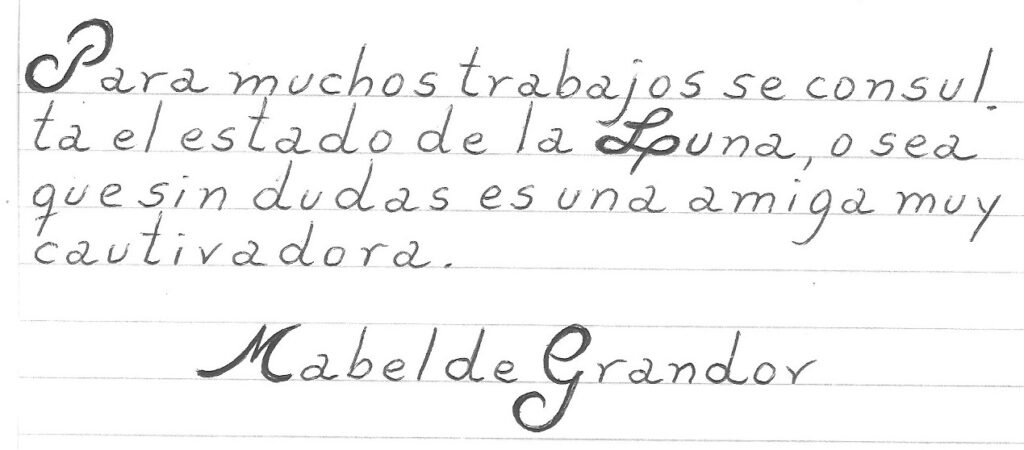 Para muchos trabajos se consul.
ta el estado de la Luna, o sea
que sin dudas es una amiga muy
cautivadora.
Mabel de Grandor